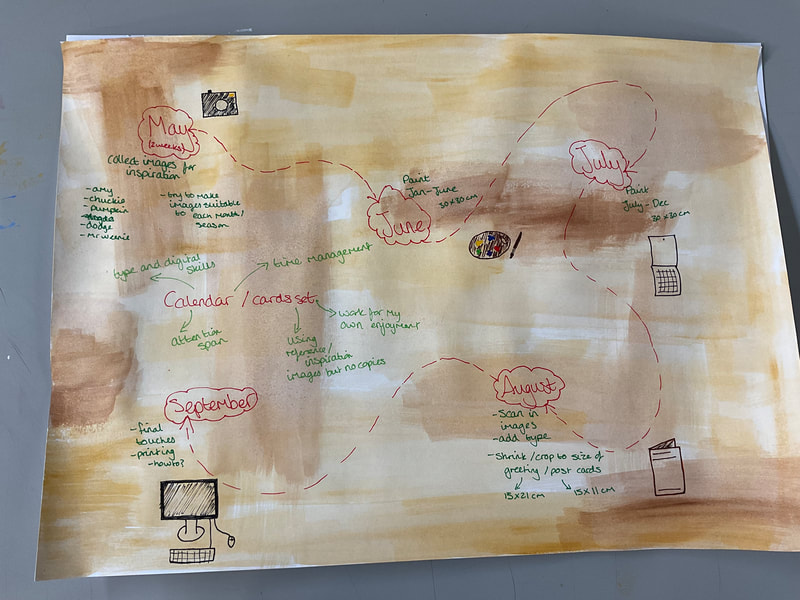 May
(2weeks)
collect images for
inspiration
- amy
- chuckie
- pumpkin
- dodge
- Mr weenie
- try to make
images suitable
to each month/
season
June
Paint
Jan-June
30x30cm
July
Paint
July-Dec
30x30cm
type and digital
skills
time management
Calendar / cards set
attention
span
using
reference/
inspiration
images but no copies
work for my
own enjoyment
August
- Scan in
images
- add type
- Shrink/crop to size of
greeting/post cards
15x21cm
15x11cm
September
- final
touches
- printing
- how to?